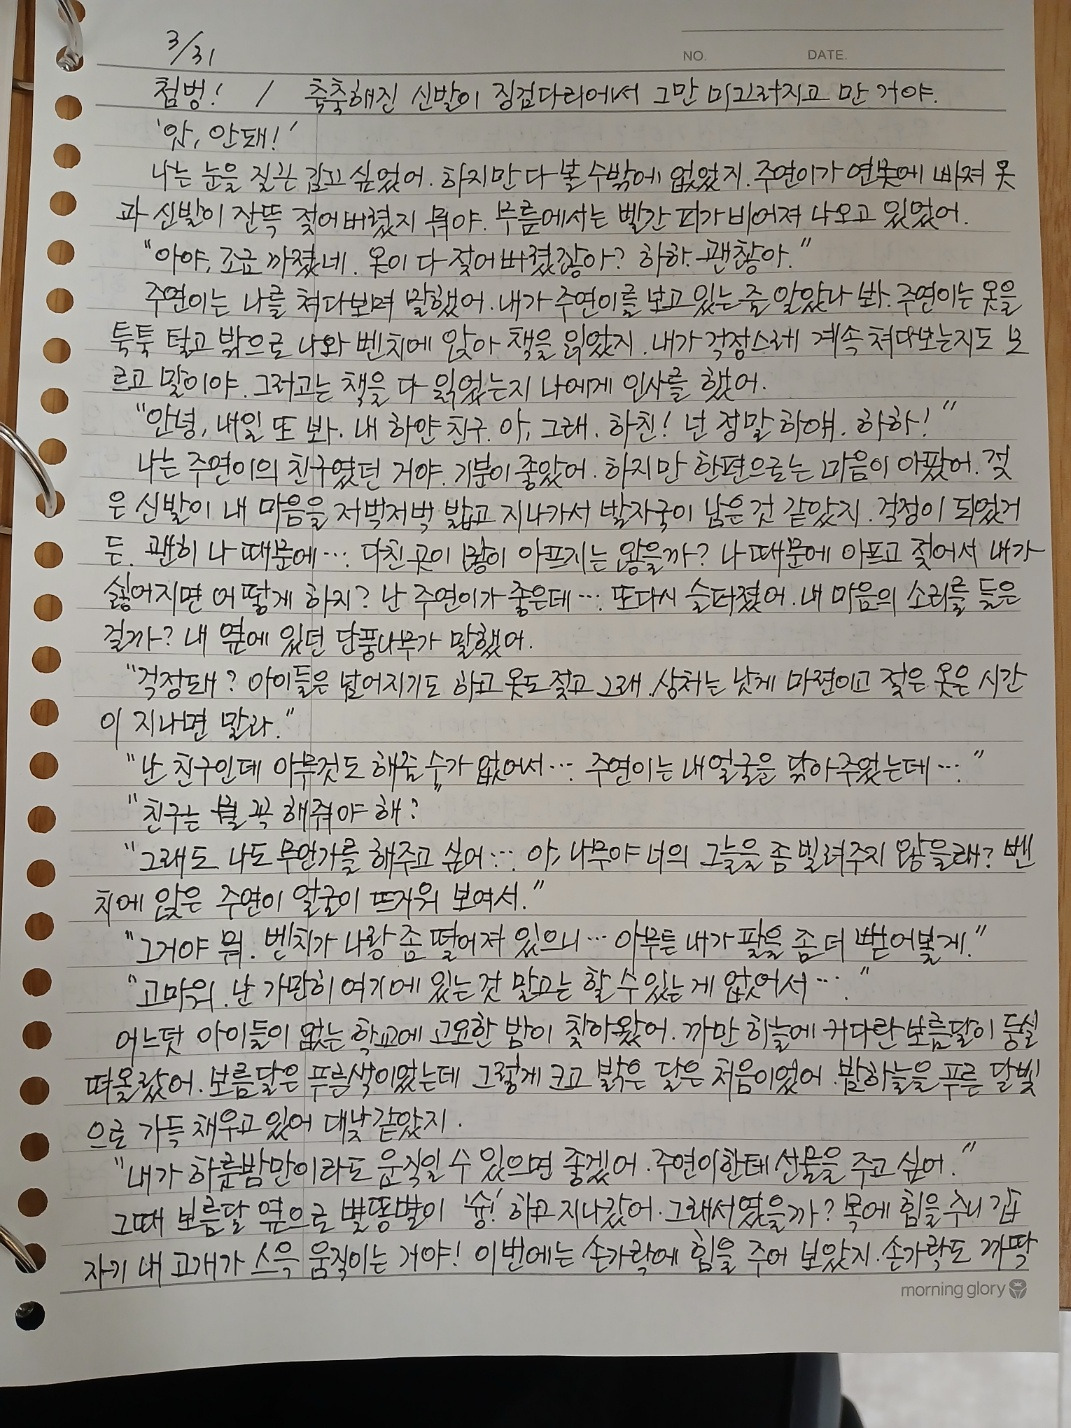 3/31
NO. DATE.
첨벙! / 축축해진 신발이 징검다리에서 그만 미끄러지고 만 거야.
'앗, 안돼!'
나는 눈을 질끈 감고 싶었어. 하지만 다 볼 수밖에 없었지. 주연이가 연못에 빠져 옷
과 신발이 잔뜩 젖어버렸지 뭐야. 무릎에서는 빨간 피가 비어져 나오고 있었어.
"아야, 조금 까졌네. 옷이 다 젖어버렸잖아? 하하. 괜찮아."
주연이는 나를 쳐다보며 말했어. 내가 주연이를 보고 있는 줄 알았나 봐. 주연이는 옷을
툭툭 털고 밖으로 나와 벤치에 앉아 책을 읽었지. 내가 걱정스레 계속 쳐다보는지도 모
르고 말이야. 그러고는 책을 다 읽었는지 나에게 인사를 했어.
"안녕, 내일 또 봐. 내 하얀 친구. 아, 그래. 하친! 넌 정말 하얘. 하하!"
나는 주연이의 친구였던 거야. 기분이 좋았어. 하지만 한편으로는 마음이 아팠어. 젖
은 신발이 내 마음을 저벅저벅 밟고 지나가서 발자국이 남은 것 같았지. 걱정이 되었거
든. 괜히 나 때문에… 다친 곳이 많이 아프지는 않을까? 나 때문에 아프고 젖어서 내가
싫어지면 어떻게 하지? 난 주연이가 좋은데…. 또다시 슬퍼졌어. 내 마음의 소리를 들은
걸까? 내 옆에 있던 단풍나무가 말했어.
"걱정돼? 아이들은 넘어지기도 하고 옷도 젖고 그래. 상처는 낫게 마련이고 젖은 옷은 시간
이 지나면 말라."
"난 친구인데 아무것도 해줄 수가 없어서…. 주연이는 내 얼굴을 닦아주었는데…."
"친구는 뭘 꼭 해줘야 해?
"그래도 나도 무언가를 해주고 싶어…. 아, 나무야 너의 그늘을 좀 빌려주지 않을래? 벤
치에 앉은 주연이 얼굴이 뜨거워 보여서."
"그거야 뭐. 벤치가 나랑 좀 떨어져 있으니… 아무튼 내가 팔을 좀 더 뻗어볼게."
"고마워. 난 가만히 여기에 있는 것 말고는 할 수 있는 게 없어서…."
어느덧 아이들이 없는 학교에 고요한 밤이 찾아왔어. 까만 하늘에 커다란 보름달이 둥실
떠올랐어. 보름달은 푸른색이었는데 그렇게 크고 밝은 달은 처음이었어. 밤하늘을 푸른 달빛
으로 가득 채우고 있어 대낮 같았지.
"내가 하룻밤만이라도 움직일 수 있으면 좋겠어. 주연이한테 선물을 주고 싶어."
그때 보름달 옆으로 별똥별이 '슝!' 하고 지나갔어. 그래서였을까? 목에 힘을 주니 갑
자기 내 고개가 스윽 움직이는 거야! 이번에는 손가락에 힘을 주어 보았지. 손가락도 까딱
morning glory